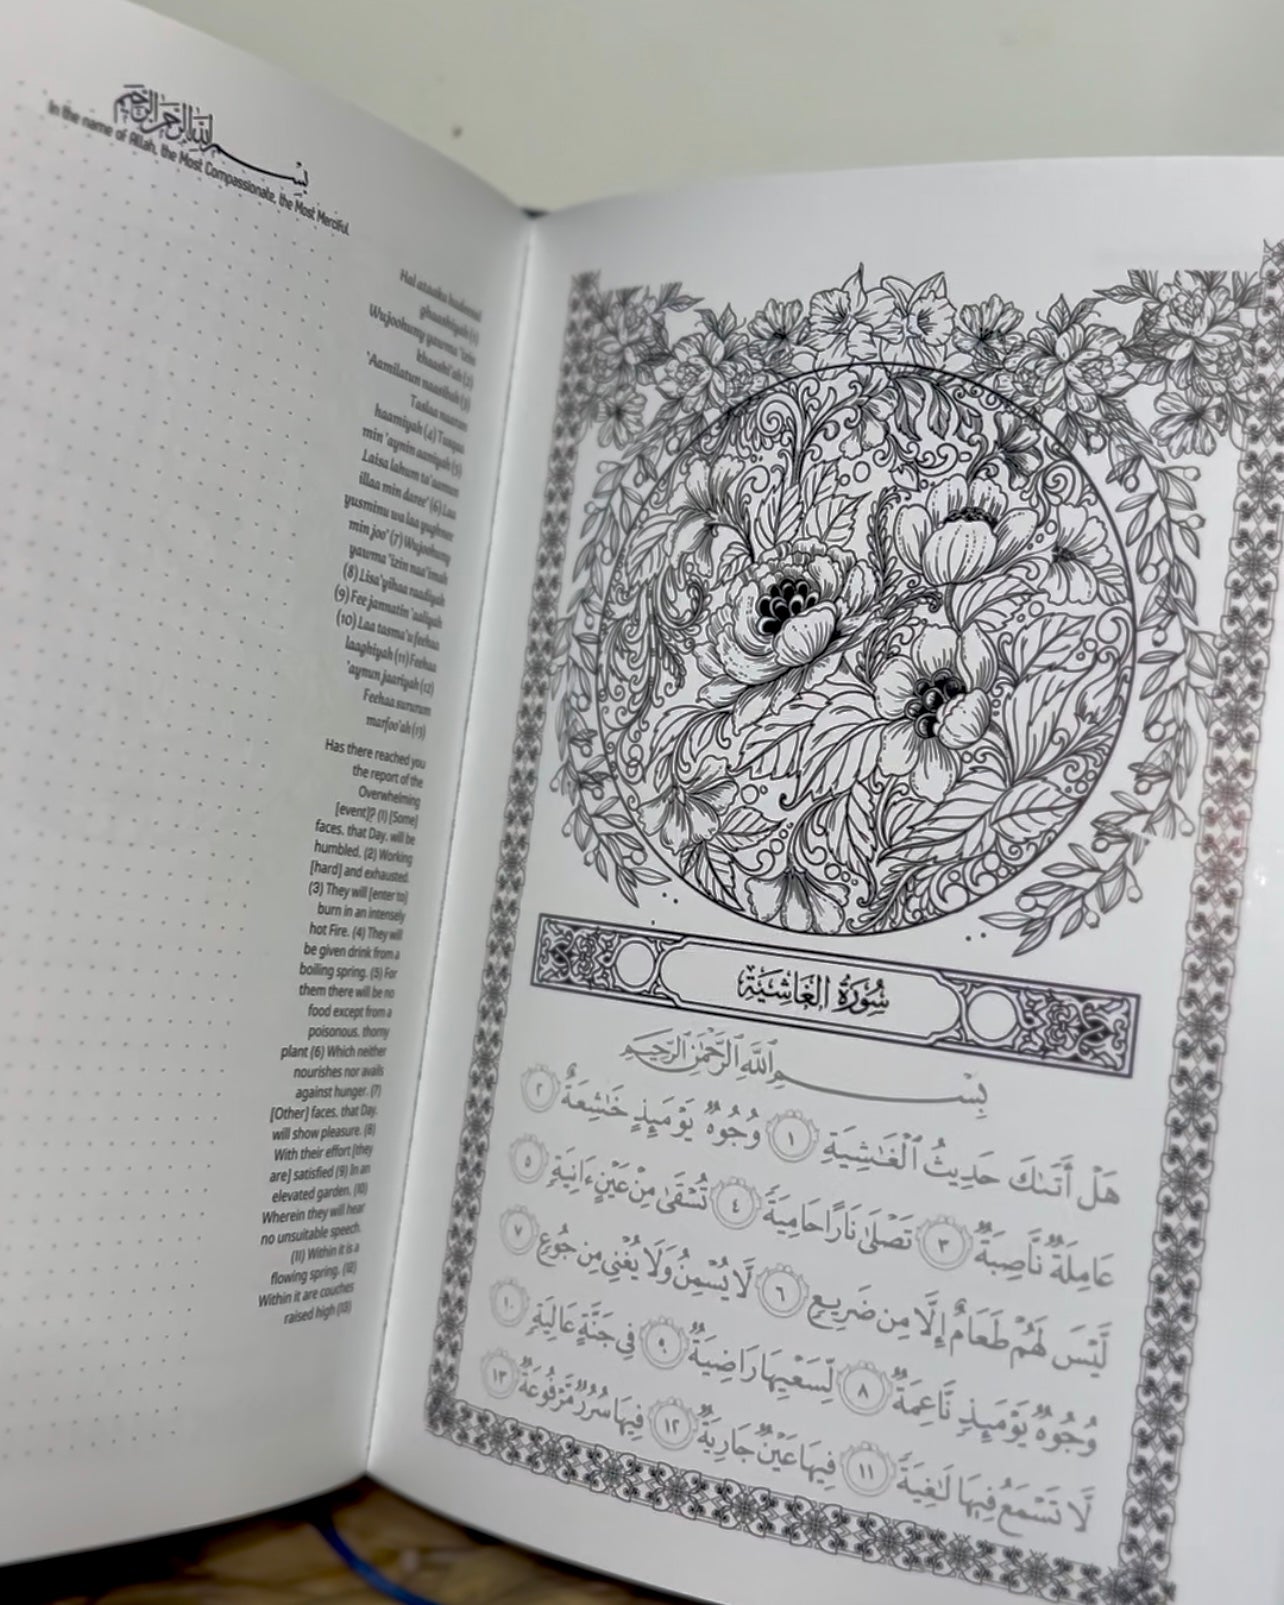 بِسْمِ اللَّهِ الرَّحْمَٰنِ الرَّحِيمِ
In the name of Allah, the Most Compassionate, the Most Merciful.
Hal ataaka hadeesul
ghaashiyah (1)
Wujoohuny yawma 'izin
khaashi'ah (2)
'Aamilatun naasibah (3)
Taslaa naaran
haamiyah (4) Tusqaa
min 'aynin aaniyah (5)
Laisa lahum ta'aamun
illaa min daree' (6) Laa
yusminu wa laa yughnee
min joo' (7) Wujoohuny
yawma 'izin naa'imah
(8) Lisa'yihaa raadiyah
(9) Fee jannatin 'aaliyah
(10) Laa tasma'u feehaa
laaghiyah (11) Feehaa
'aynun jaariyah (12)
Feehaa sururum
marfoo'ah (13)
Has there reached you
the report of the
Overwhelming
[event]? (1) [Some]
faces, that Day, will be
humbled, (2) Working
[hard] and exhausted.
(3) They will [enter to]
burn in an intensely
hot Fire. (4) They will
be given drink from a
boiling spring. (5) For
them there will be no
food except from a
poisonous, thorny
plant (6) Which neither
nourishes nor avails
against hunger. (7)
[Other] faces, that Day,
will show pleasure. (8)
With their effort [they
are] satisfied (9) In an
elevated garden, (10)
Wherein they will hear
no unsuitable speech.
(11) Within it is a
flowing spring. (12)
Within it are couches
raised high (13)
سُورَةُ الغَاشِيَةِ
بِسْمِ ٱللَّهِ ٱلرَّحْمَٰنِ ٱلرَّحِيمِ
هَلْ أَتَىٰكَ حَدِيثُ ٱلْغَٰشِيَةِ ١ وُجُوهٌ يَوْمَئِذٍ خَٰشِعَةٌ ٢
عَامِلَةٌ نَّاصِبَةٌ ٣ تَصْلَىٰ نَارًا حَامِيَةً ٤ تُسْقَىٰ مِنْ عَيْنٍ ءَانِيَةٍ ٥
لَّيْسَ لَهُمْ طَعَامٌ إِلَّا مِن ضَرِيعٍ ٦ لَّا يُسْمِنُ وَلَا يُغْنِي مِن جُوعٍ ٧
وُجُوهٌ يَوْمَئِذٍ نَّاعِمَةٌ ٨ لِّسَعْيِهَا رَاضِيَةٌ ٩ فِي جَنَّةٍ عَالِيَةٍ ١٠
لَّا تَسْمَعُ فِيهَا لَٰغِيَةً ١١ فِيهَا عَيْنٌ جَارِيَةٌ ١٢ فِيهَا سُرُرٌ مَّرْفُوعَةٌ ١٣